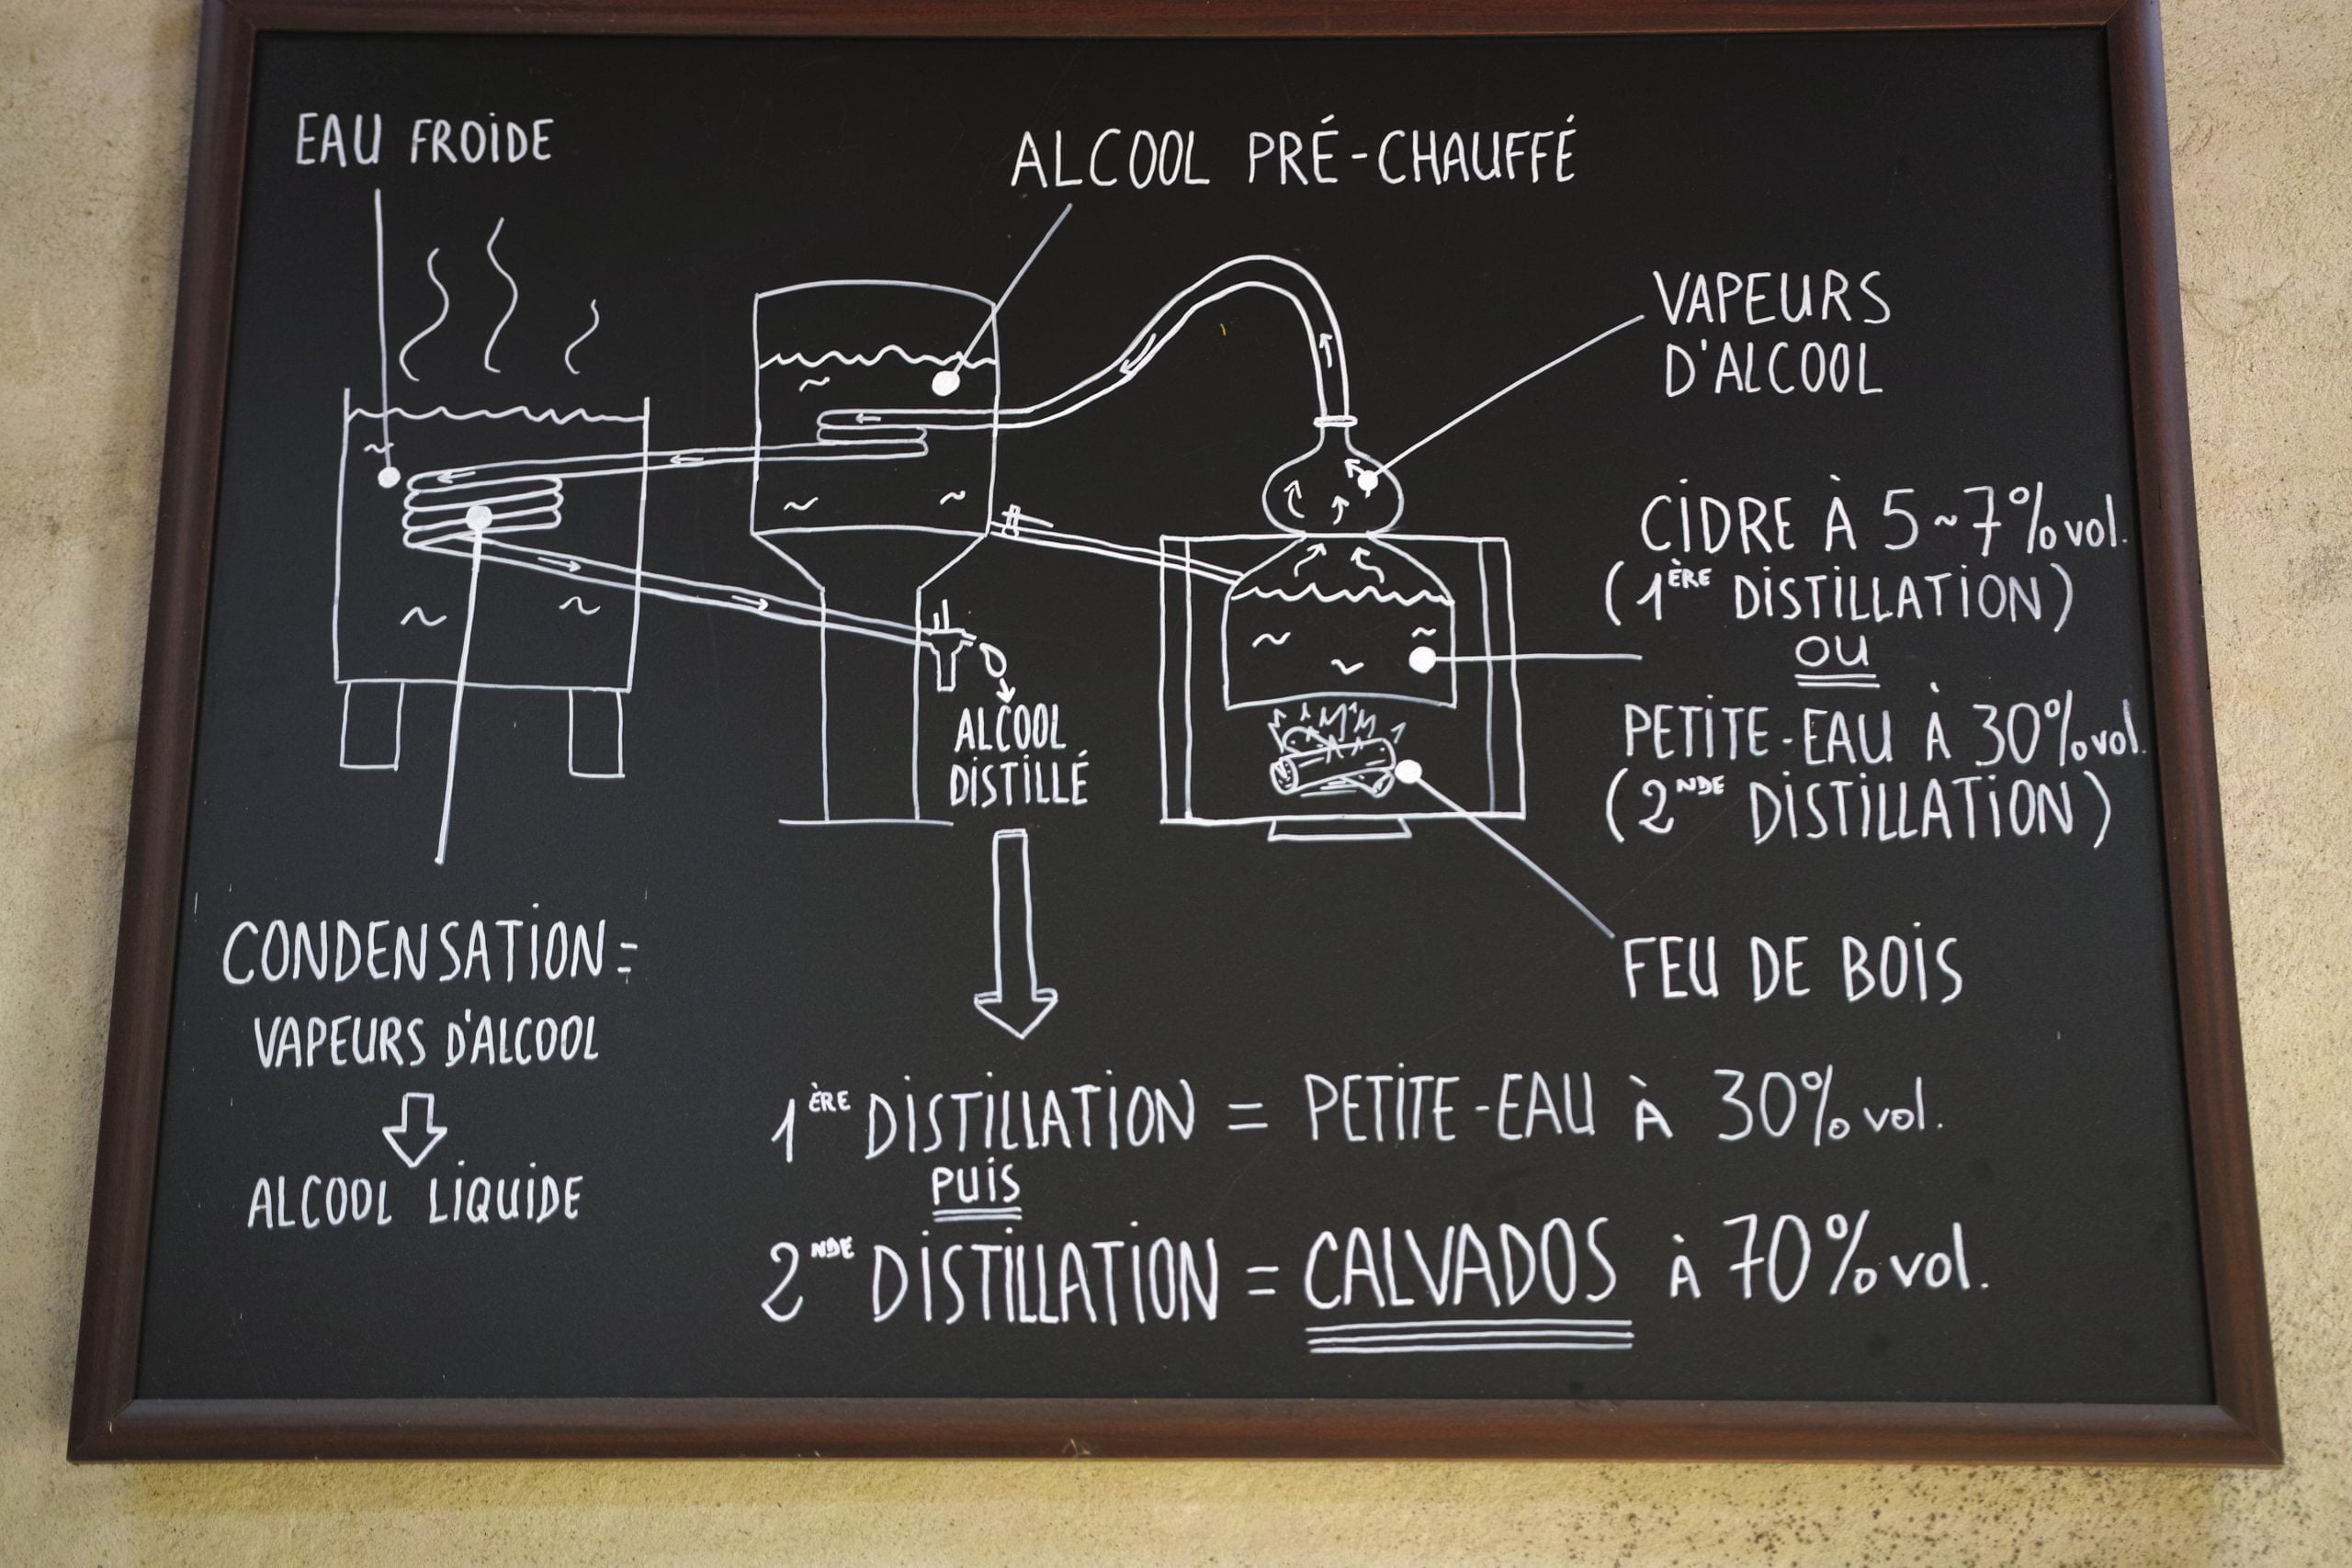 EAU FROIDE
ALCOOL PRÉ-CHAUFFÉ
VAPEURS
D'ALCOOL
CIDRE À 5~7% vol.
(1ÈRE DISTILLATION)
OU
PETITE-EAU À 30% vol.
(2NDE DISTILLATION)
FEU DE BOIS
ALCOOL
DISTILLÉ
CONDENSATION =
VAPEURS D'ALCOOL
ALCOOL LIQUIDE
1ÈRE DISTILLATION = PETITE-EAU À 30% vol.
PUIS
2NDE DISTILLATION = CALVADOS À 70% vol.